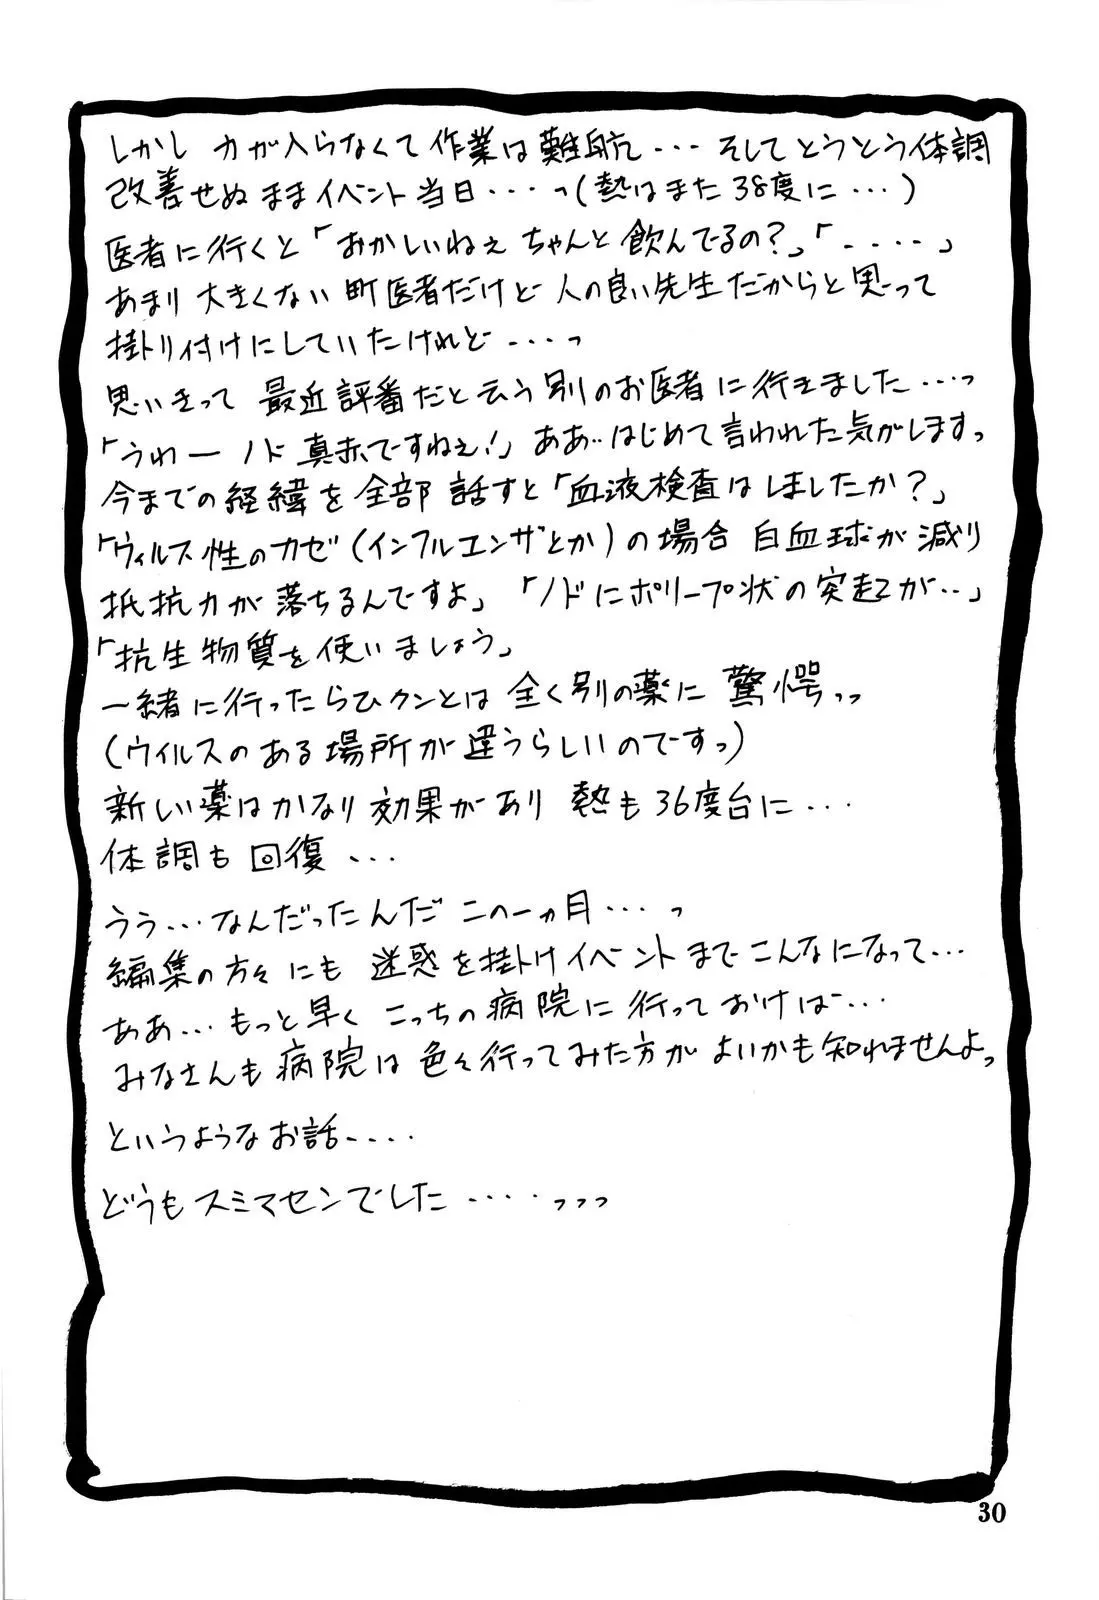 しかし 力が入らなくて作業は難航・・・そしてとうとう体調
改善せぬままイベント当日・・・っ(熱はまた38度に・・・)
医者に行くと「おかしいねぇ ちゃんと飲んでるの?」「・・・・」
あまり大きくない町医者だけど人の良い先生だからと思って
掛トリ付けにしていたけれど・・・っ
思いきって 最近評番だと云う別のお医者に行きました・・・っ
「うわー ノド真赤ですねぇ!」ああ・・はじめて言われた気がしますっ
今までの経緯を全部話すと「血液検査はしましたか?」
「ウィルス性のカゼ(インフルエンザとか)の場合 白血球が減り
抵抗力が落ちるんですよ」「ノドにポリープ状の突起が・・」
「抗生物質を使いましょう」
一緒に行ったらひクンとは全く別の薬に驚愕っっ
(ウイルスのある場所が違うらしいのですっ)
新しい薬はかなり効果があり 熱も36度台に・・・
体調も回復・・・
うう・・・なんだったんだこの一ヵ月・・・っ
編集の方々にも 迷惑を掛けイベントまでこんなになって・・・
ああ・・・もっと早く こっちの病院に行っておけば・・・
みなさんも病院は色々行ってみた方がよいかも知れませんよっ
というようなお話・・・・
どうもスミマセンでした・・・・っっっ
30